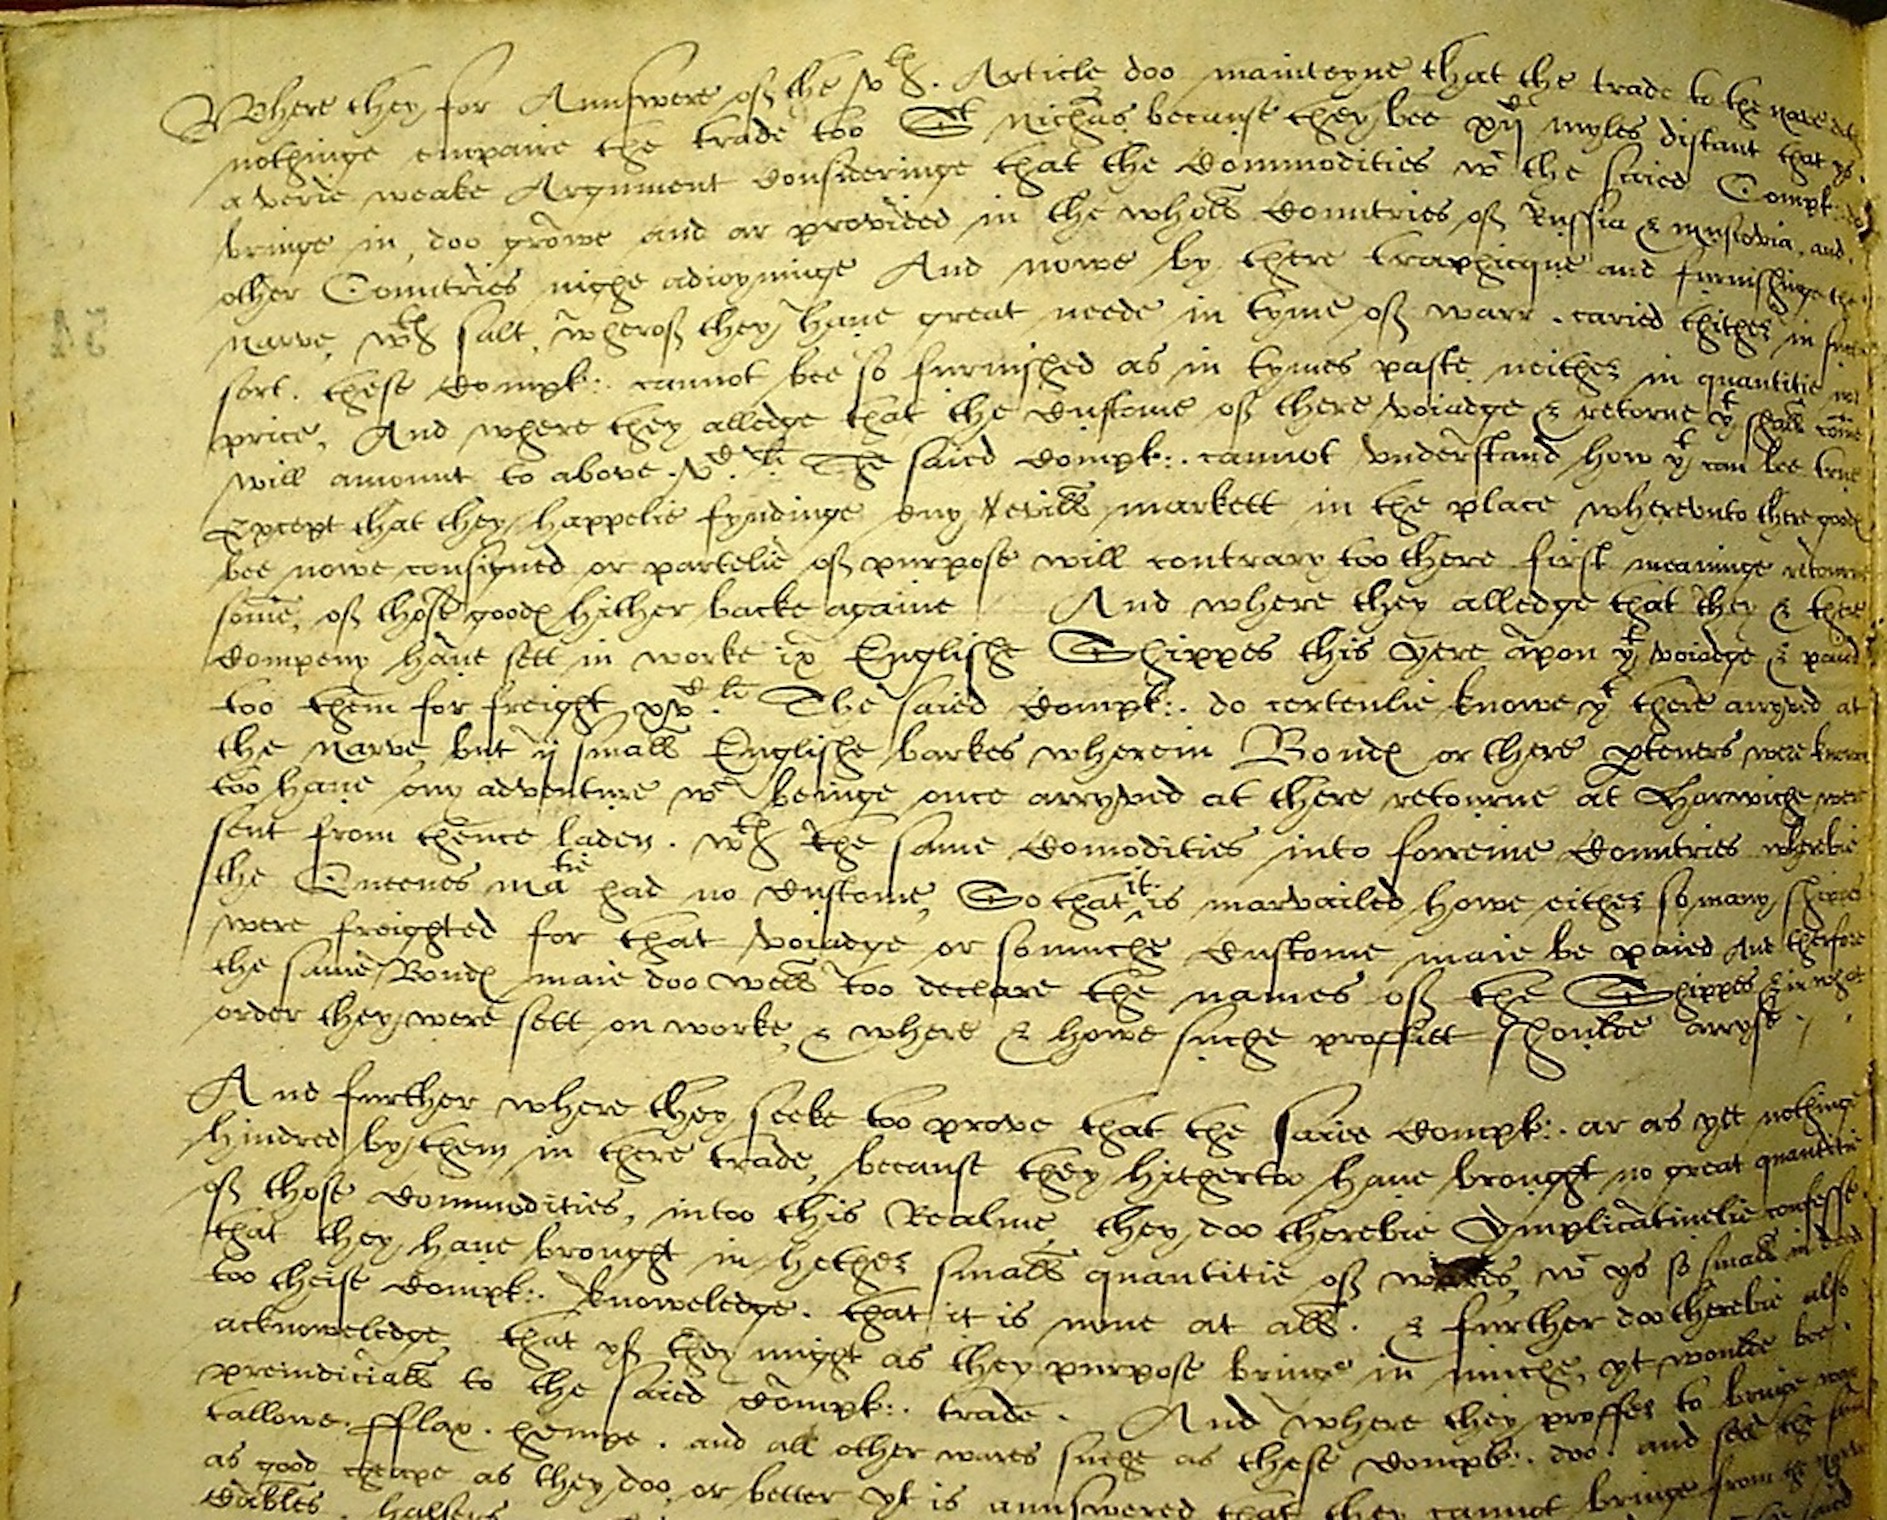 Where they for Aunswere of the vth. Article doo mainteyne that the trade to the narve doth
nothinge empaire the trade too St Nichas because they bee xijC myles distant that ys
a verie weake Argument Considringe that the Commodities wch the saied Complts: do
bringe in, doo growe and ar provided in the whole Countries of Russia & muscovia, and
other Countries nighe adioyninge And nowe by there traphicque and furnishinge the
Narve, wth salt, wherof they have great neede in tyme of warr. caried thither in such
sort. these Complts: cannot bee so furnished as in tymes paste neither in quantitie nor
price, And where they alledge that the Custome of there voiadge & retorne yt shall come
will amount to above. vC li. The saied Complts:. cannot understand how yt can bee true
Except that they happelie fyndinge any evill markett in the place wherunto there goodes
bee nowe consigned or partelie of purpose will contrary too there first meaninge retourne
some, of those goodes hither backe againe And where they alledge that they & there
Company have sett in worke ix Englishe Shippes this yere apon yt voiadge & paied
too them for freight xvC li. The saied Complts:. do certenlie knowe yt there arryved at
the Narve, but ij small Englishe barkes wherein Bondes or there parteners were knowen
too have any adventure wch beinge once arryved at there retourne at Harwiche were
sent from thence laden. wth the same Comodities into forreine Countries wherbie
the Queenes matie had no Custome, So that it is marvailed howe either so many shippes
were freighted for that voiadge or somuche Custome maie be paied And therfore
the same Bondes maie doo well too declare the names of the Shippes & in what
order they were sett on worke, & where & howe suche proffitt shoulde arryse.
And further where they seeke too prove that the saied Complts:. ar as yet nothinge
hindred by them in there trade, because they hithertoo have brought no great quantitie
of those Commodities, intoo this Realme, they doo therebie Ymplicatiuelie confesse
that they have brought in hether small quantitie of wares, wch ys so small in deed
too theise Complts:. knoweledge. that it is none at all. & further doo therebie also
acknoweledge, that yf they might as they purpose bringe in muche, yt woulde bee
preiudiciall to the saied Complts:. trade. And where they proffer to bringe wax
tallowe. fflax. hempe. and all other wares suche as these Complts:. doo. and sell the same
as good cheape as they doo, or better yt is aunswered that they cannot bringe from the Narve
Cables. halsers